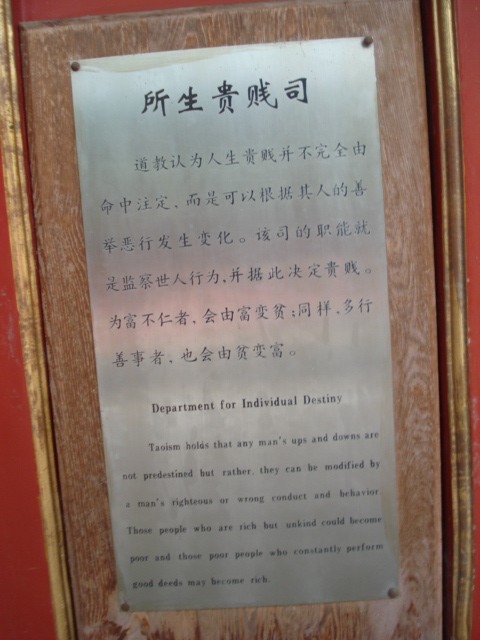 所生贵贱司
道教认为人生贵贱并不完全由
命中注定、而是可以根据其人的善
举恶行发生变化。该司的职能就
是监察世人行为,并据此决定贵贱。
为富不仁者,会由富变贫;同样,多行
善事者,也会由贫变富。
Department for Individual Destiny
Taoism holds that any man's ups and downs are
not predestined but rather, they can be modified by
a man's righteous or wrong conduct and behavior.
Those people who are rich but unkind could become
poor and those poor people who constantly perform
good deeds may become rich.